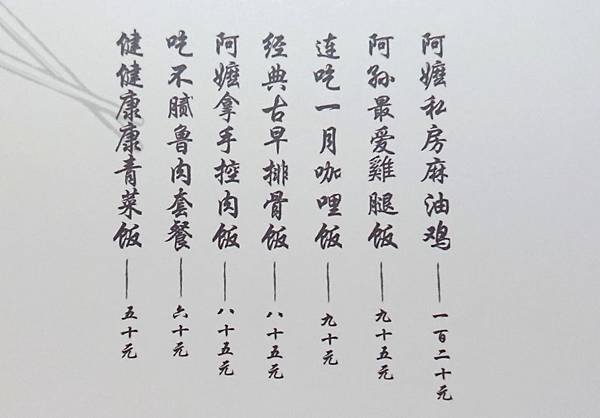 阿嬤私房麻油鸡——一百二十元
阿孙最爱雞腿饭——九十五元
连吃一月咖哩饭——九十元
经典古早排骨饭——八十五元
阿嬤拿手控肉饭——八十五元
吃不腻鲁肉套餐——六十元
健健康康青菜饭——五十元